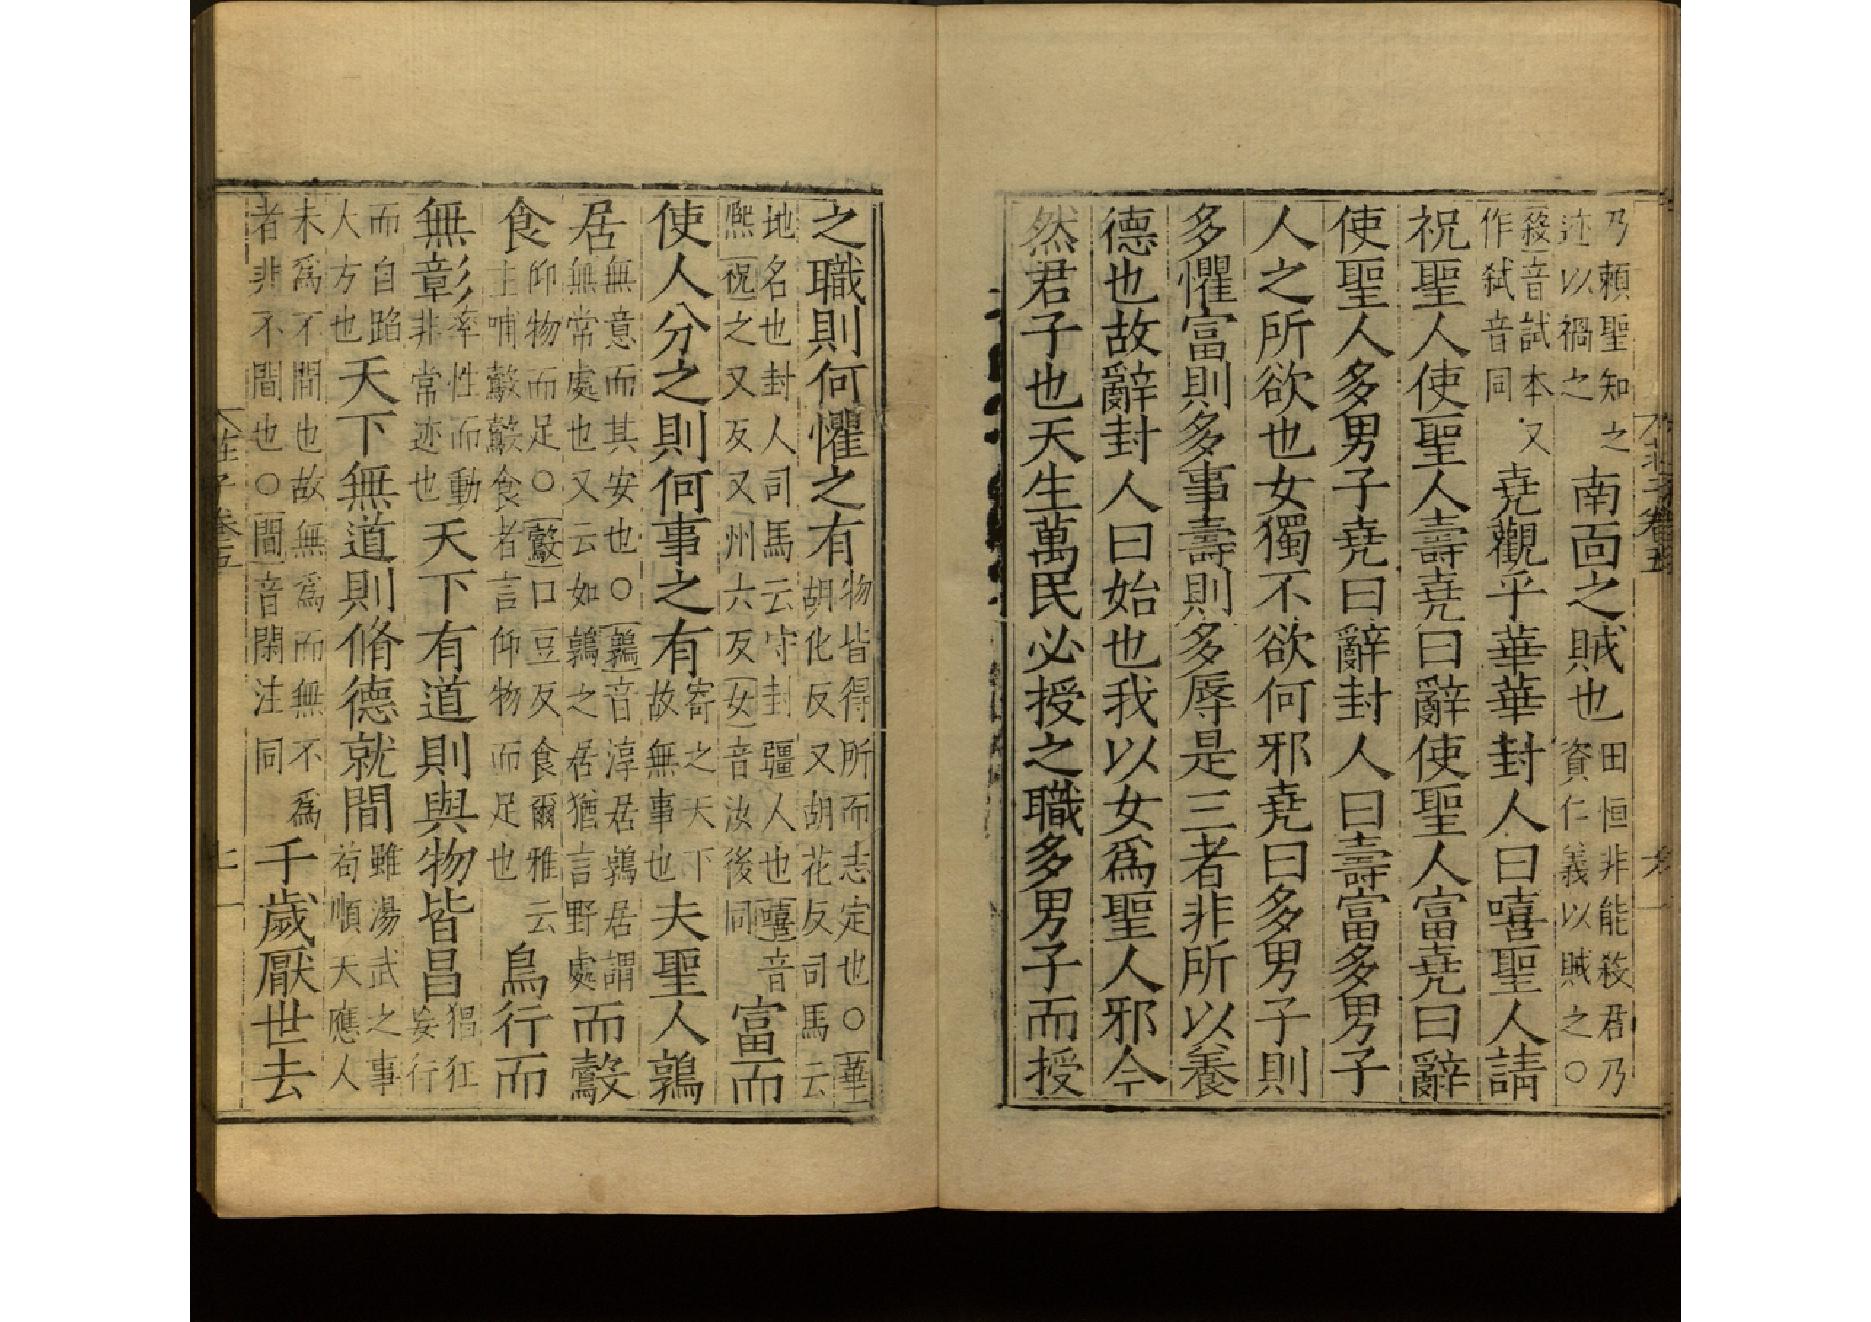 乃賴聖知之迹以禍之南面之賊也田恒非能殺君乃資仁義以賊之○
殺音試本又作弑音同堯觀乎華華封人曰嘻聖人請
祝聖人使聖人壽堯曰辭使聖人富堯曰辭
使聖人多男子堯曰辭封人曰壽富多男子
人之所欲也女獨不欲何邪堯曰多男子則
多懼富則多事壽則多辱是三者非所以養
德也故辭封人曰始也我以女爲聖人邪今
然君子也天生萬民必授之職多男子而授
之職則何懼之有物皆得所而志定也○華胡化反又胡花反司馬云
地名也封人司馬云守封疆人也嘻音熈祝之又反又州六反女音汝後同富而
使人分之則何事之有寄之天下故無事也夫聖人鶉
居無意而其安也○鶉音淳居鶉居謂無常處也又云如鶉之居猶言野處而鷇
食仰物而足○鷇口豆反食爾雅云主哺鷇鷇食者言仰物而足也鳥行而
無彰率性而動非常迹也天下有道則與物皆昌猖狂妄行
而自蹈大方也天下無道則脩德就間雖湯武之事苟順天應人
未爲不間也故無爲而無不爲者非不間也○間音閑注同千歲厭世去
莊子卷五